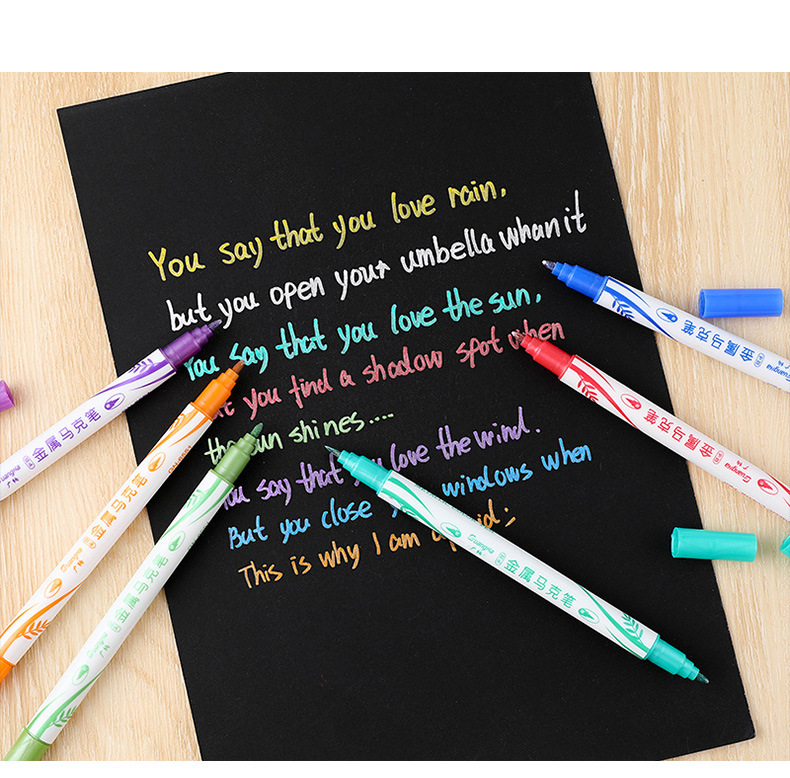 You say that you love rain,
but you open your umbella whan it
You say that you love the sun,
you find a shadow spot when
the sun shines....
You say that you love the wind.
But you close windows when
This is why I am
金属马克笔
广纳
金属马克笔
Guangna
金属马克笔
Guangna
金属马克笔
Guangna
金属马克笔
Guangna
金属马克笔
Guangna